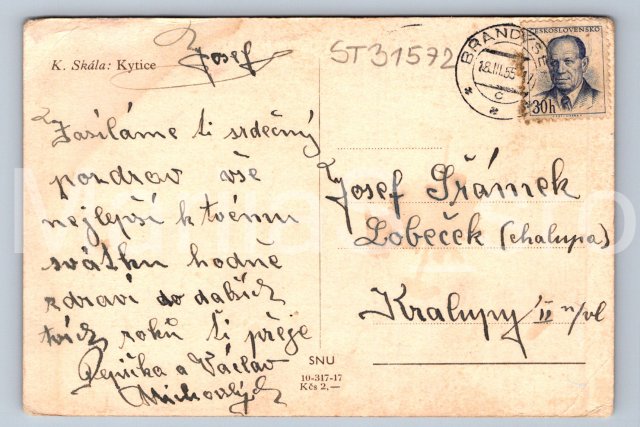 Josef
K. Skála: Kytice
ST31572
BRANDÝSE
18.III.55
C
ČESKOSLOVENSKO
30h
Zasíláme ti srdečný
pozdrav vše
nejlepší k tvému
svátku hodně
zdraví do dalších
tvích roků ti přeje
Pepička a Václav
Josef Šrámek
Lobeček (chalupa)
Kralupy II n/vl
SNU
10-317-17
Kčs 2,—